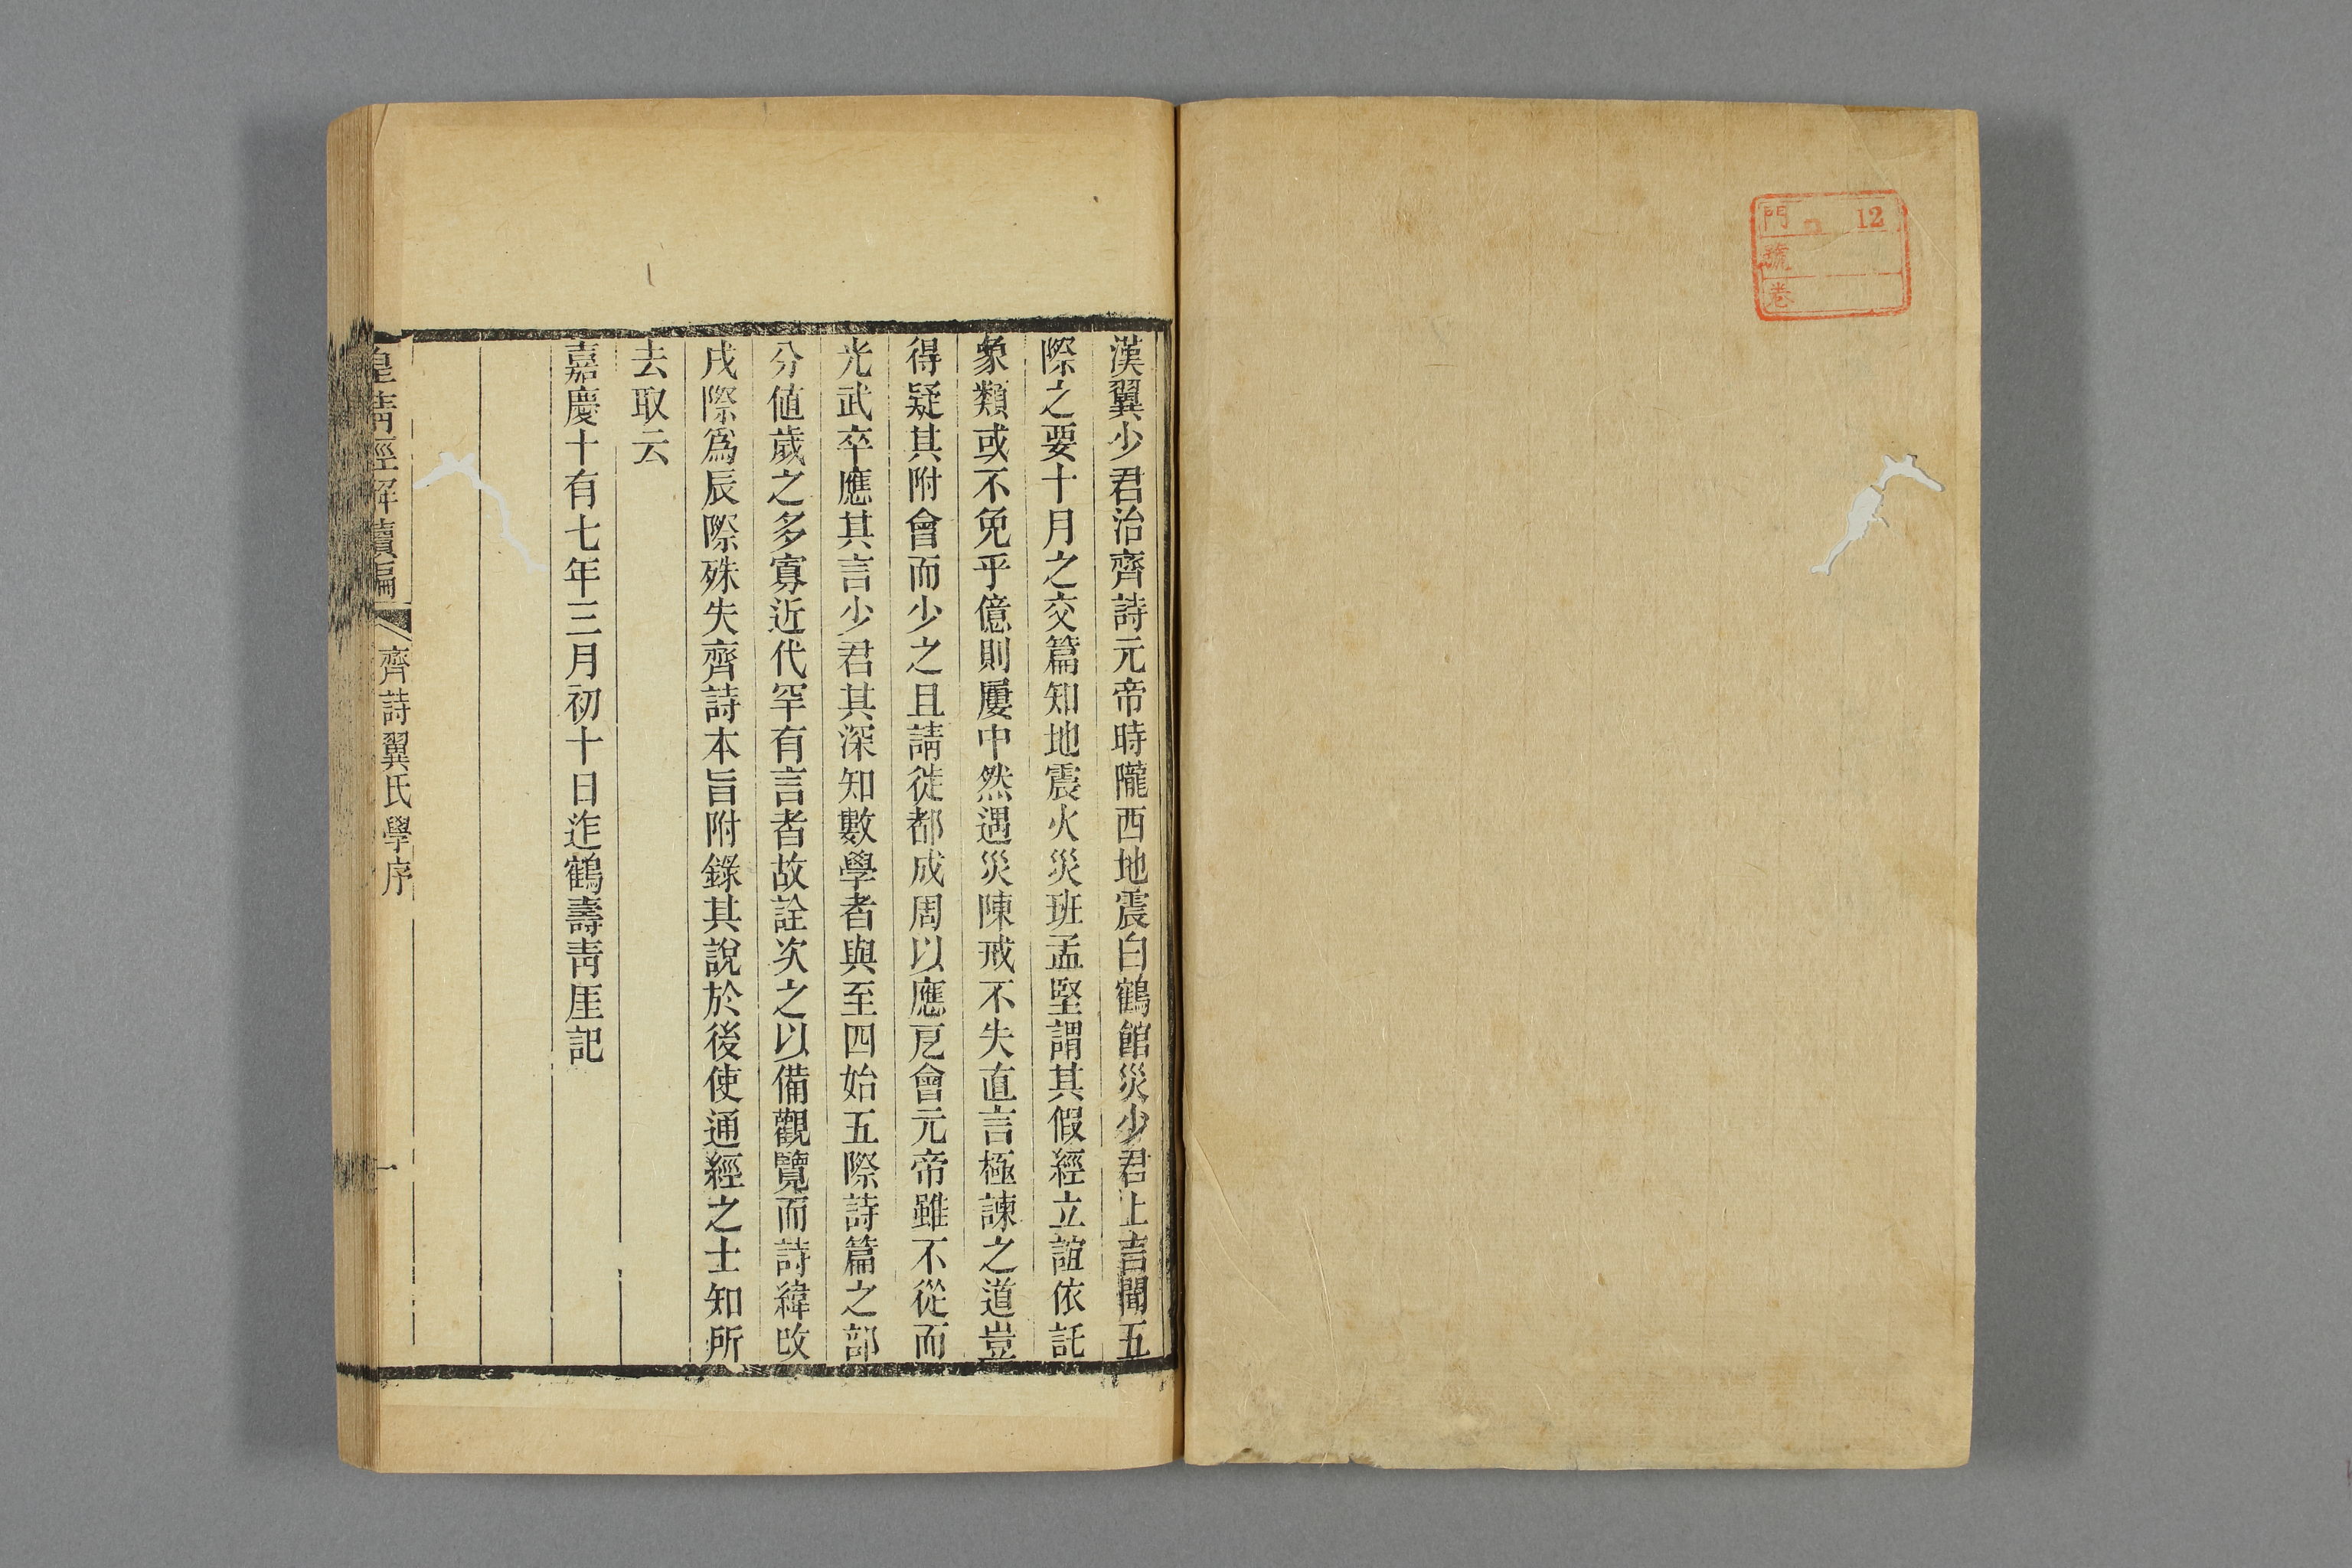 12
門
號
卷
漢翼少君治齊詩元帝時隴西地震白鶴館災少君上言聞五
際之要十月之交篇知地震火災班孟堅謂其假經立誼依託
象類或不免乎億則屢中然遇災陳戒不失直言極諫之道豈
得疑其附會而少之且請徙都成周以應戹會元帝雖不從而
光武卒應其言少君其深知數學者與至四始五際詩篇之部
分値歲之多寡近代罕有言者故詮次之以備觀覽而詩緯改
戌際爲辰際殊失齊詩本旨附錄其說於後使通經之士知所
去取云
嘉慶十有七年三月初十日迮鶴壽靑厓記
皇清經解續編 齊詩翼氏學序 一